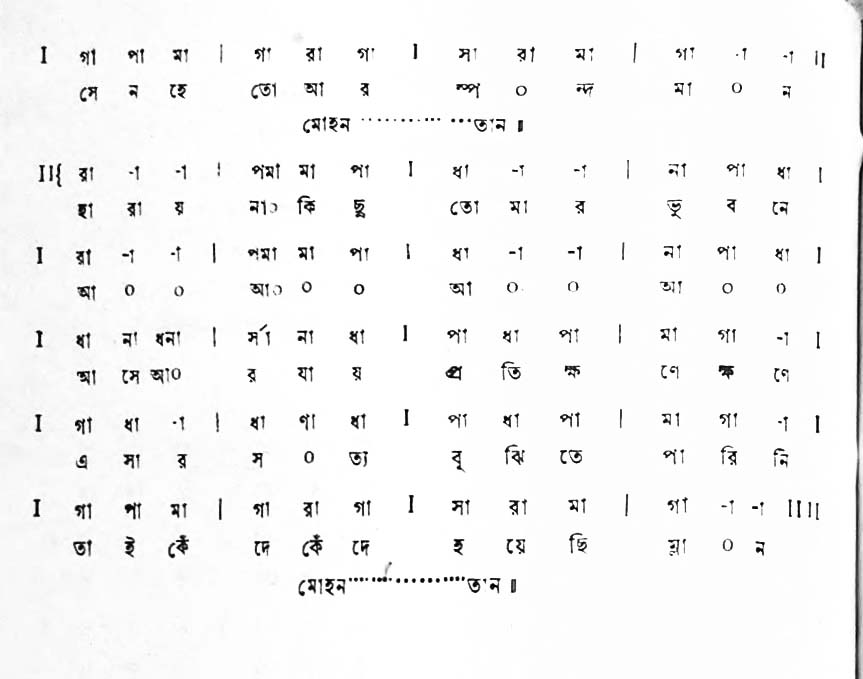 I গা পা মা | গা রা গা I সা রা মা | গা -া -া II
সে ন হে তো আ র স্প ০ ন্দ মা ০ ন
মোহন ⋯⋯⋯⋯ ⋯তান ॥
II{ রা -া -া | পমা মা পা I ধা -া -া | না পা ধা I
হা রা য় না০ কি ছু তো মা র ভু ব নে
I রা -া -া | পমা মা পা I ধা -া -া | না পা ধা I
আ ০ ০ আ০ ০ ০ আ ০ ০ আ ০ ০
I ধা না ধনা | র্সা না ধা I পা ধা পা | মা গা -া I
আ সে আ০ র যা য় প্র তি ক্ষ ণে ক্ষ ণে
I গা ধা -া | ধা ণা ধা I পা ধা পা | মা গা -া I
এ সা র স ০ ত্য বু ঝি তে পা রি নি
I গা পা মা | গা রা গা I সা রা মা | গা -া -া IIII
তা ই কেঁ দে কেঁ দে হ য়ে ছি ম্লা ০ ন
মোহন⋯⋯⋯⋯⋯তান ॥